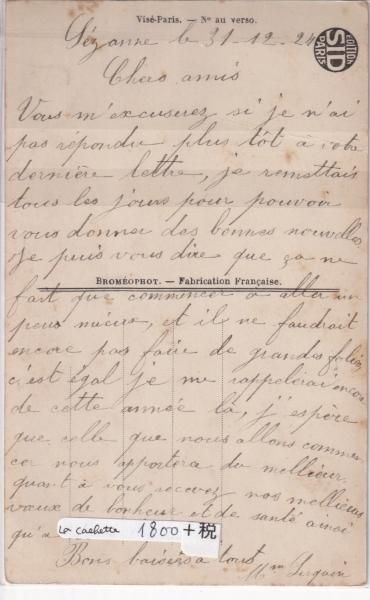 Visé-Paris. — Nº au verso.
Sézanne le 31-12-24
EDITION
SID
PARIS
Chers amis
Vous m'excuserez si je n'ai
pas répondu plus tôt à votre
dernière lettre, je remettais
tous les jours pour pouvoir
vous donner des bonnes nouvelles
Je puis vous dire que ça ne
BROMÉOPHOT. — Fabrication Française.
fait que commencer à aller un
peus mieux, et il ne faudrait
encore pas faire de grandes folies
c'est égal je me rappelerai encore
de cette année là, j'espère
que celle que nous allons commen
cer nous apportera du meilleur.
quant à vous recevez nos meilleurs
vœux de bonheur et de santé ainsi
qu'à
La Cachette 1800+税
Bons baisers à tous